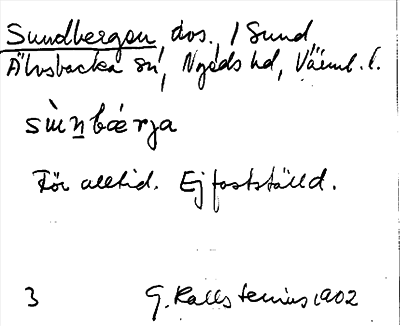 Sundbergen, avs. / Sund
Älvsbacka sn, Nyeds hd, Värml. l.
sùn̲bǽrja
För alltid. Ej fastställd.
3 G. Kallstenius 1902